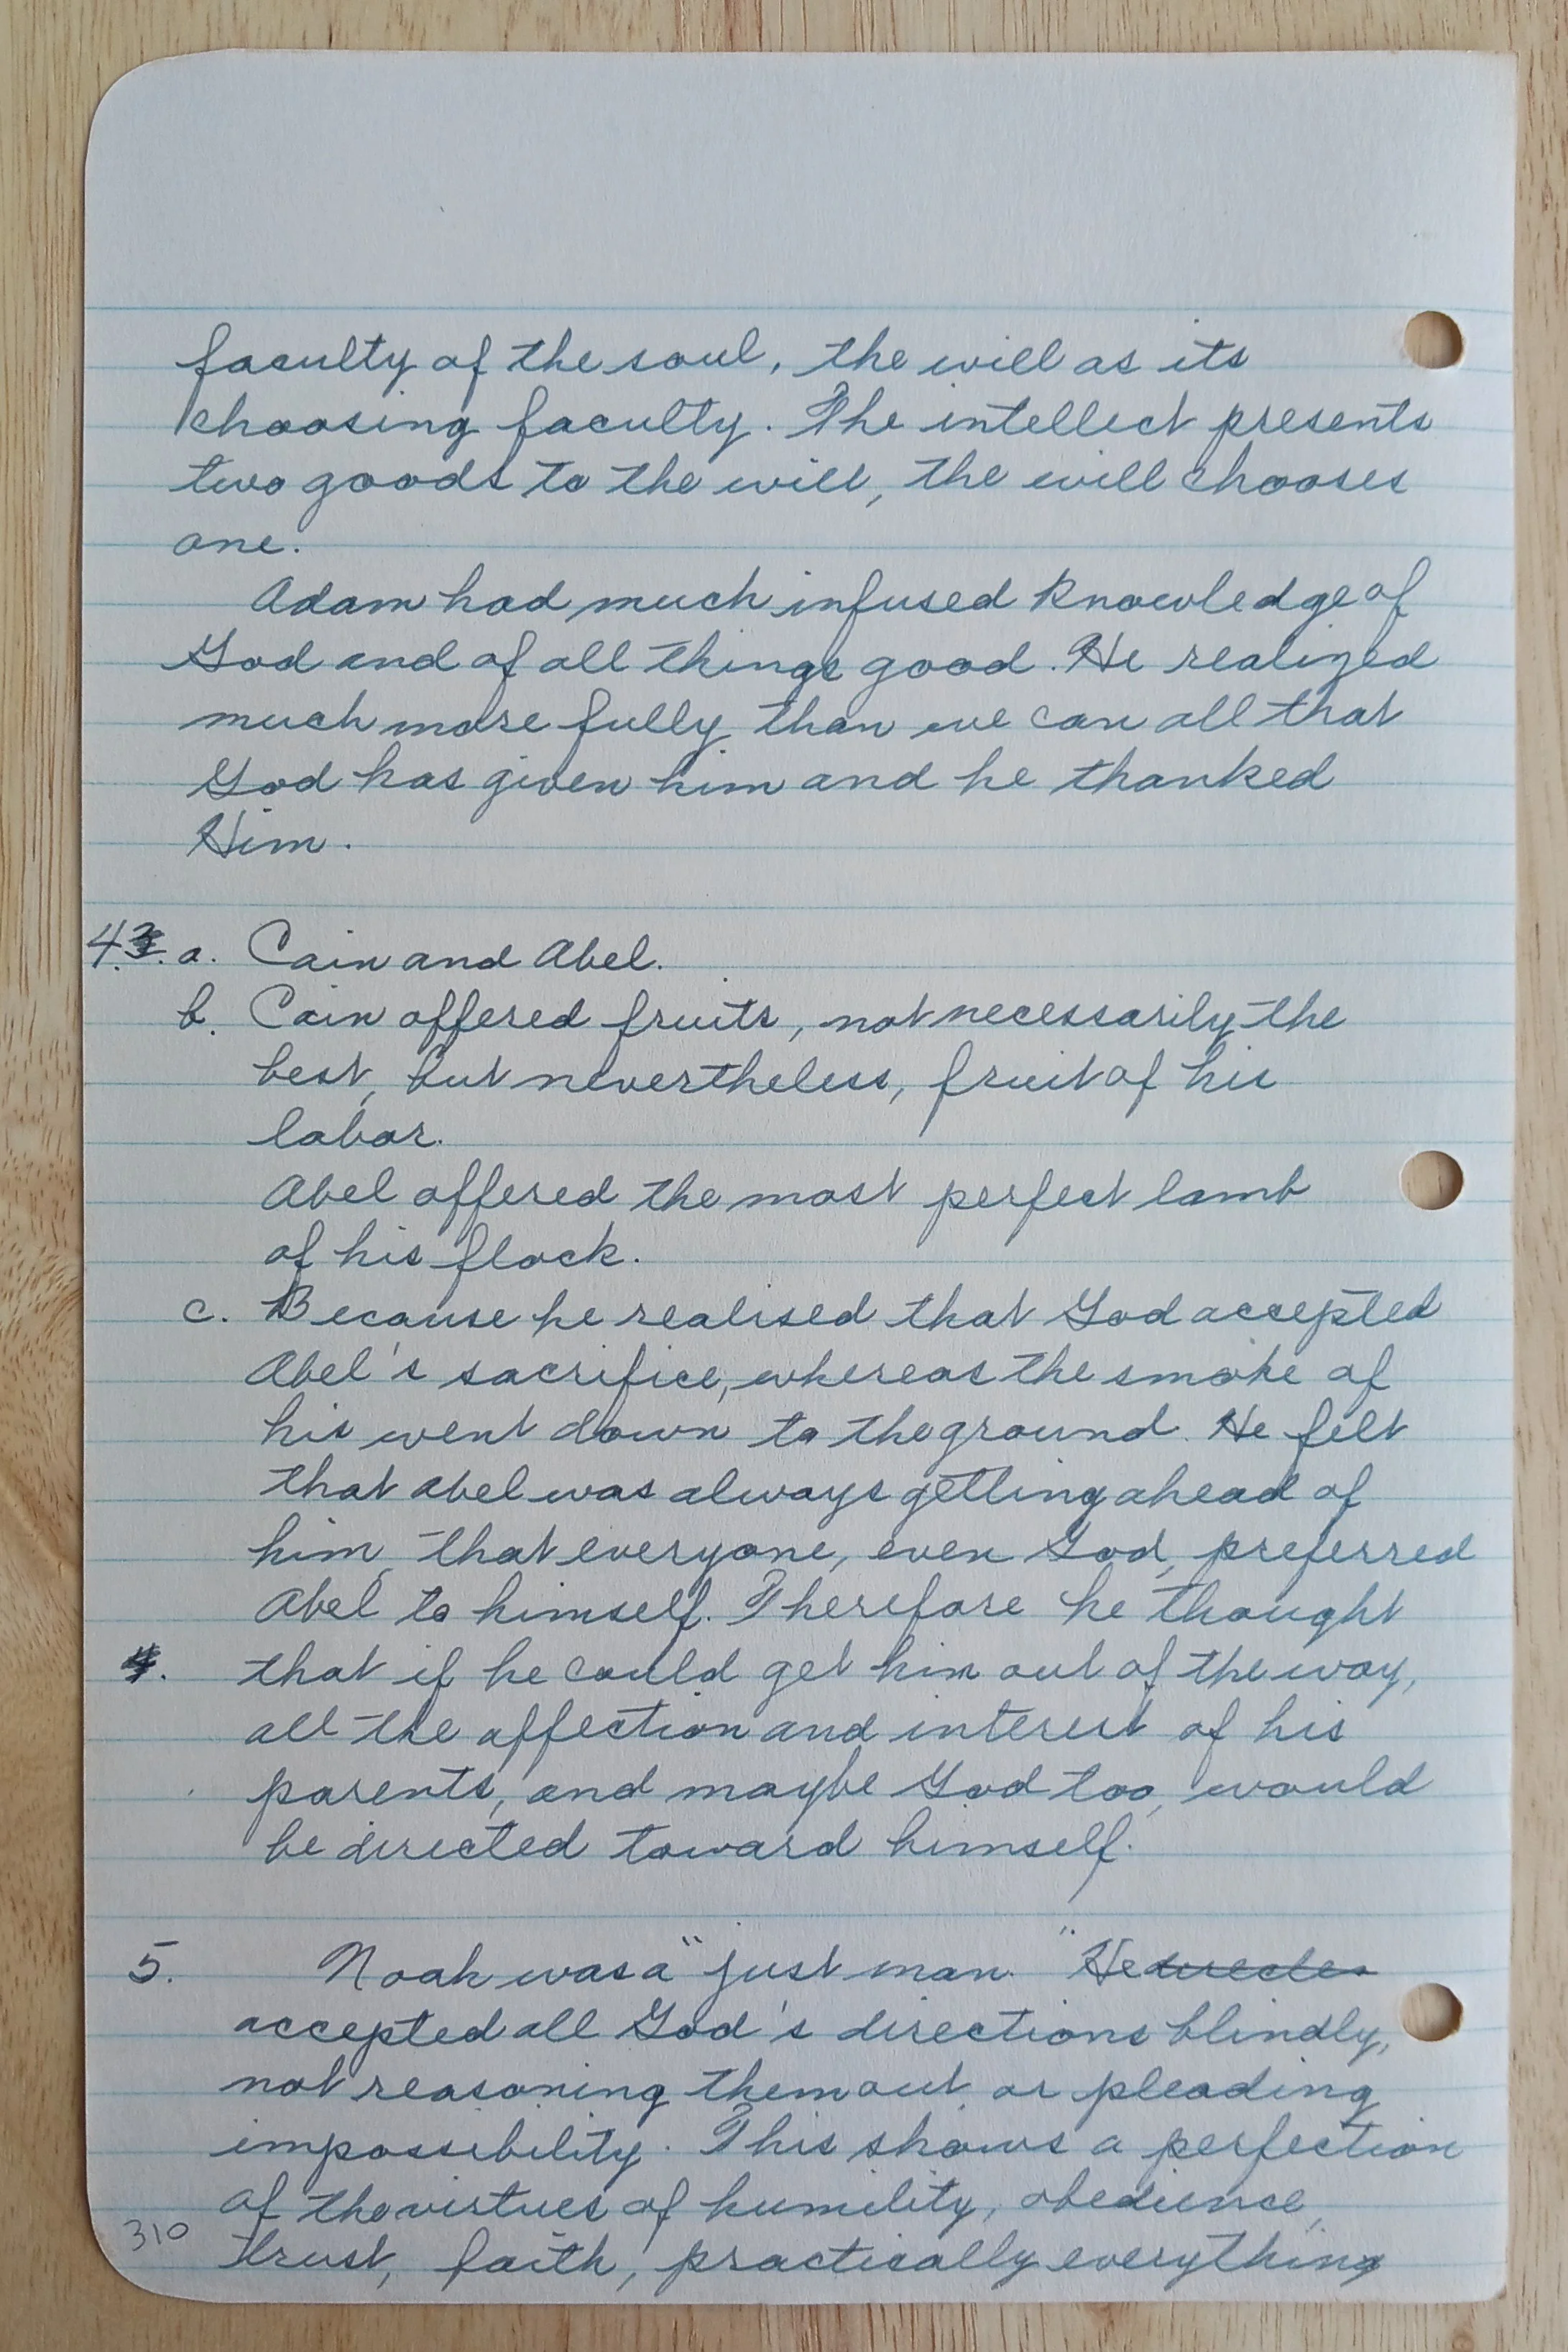 faculty of the soul, the will as its
choosing faculty. The intellect presents
two goods to the will, the will chooses
one.
Adam had much infused knowledge of
God and of all things good. He realized
much more fully than we can all that
God has given him and he thanked
Him.
4. a. Cain and Abel.
b. Cain offered fruits, not necessarily the
best, but nevertheless, fruit of his
labor.
Abel offered the most perfect lamb
of his flock.
c. Because he realised that God accepted
Abel's sacrifice, whereas the smoke of
his went down to the ground. He felt
that Abel was always getting ahead of
him, that everyone, even God, preferred
Abel to himself. Therefore he thought
that if he could get him out of the way,
all the affection and interest of his
parents, and maybe God too, would
be directed toward himself.
5. Noah was a "just man." He
accepted all God's directions blindly,
not reasoning them out, or pleading
impossibility. This shows a perfection
of the virtues of humility, obedience,
trust, faith, practically everything
310